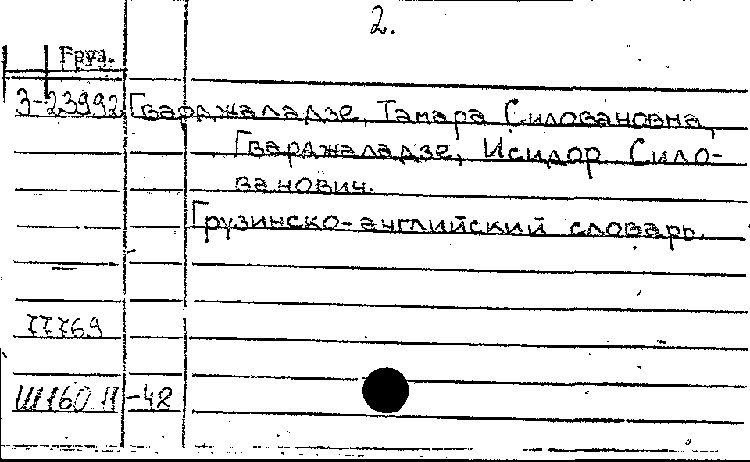 2.
Груз.
3-23992 Гварджаладзе, Тамара Силовановна,
Гварджаладзе, Исидор Сило-
ванович.
Грузинско-английский словарь.
77769
Ш160.11-42